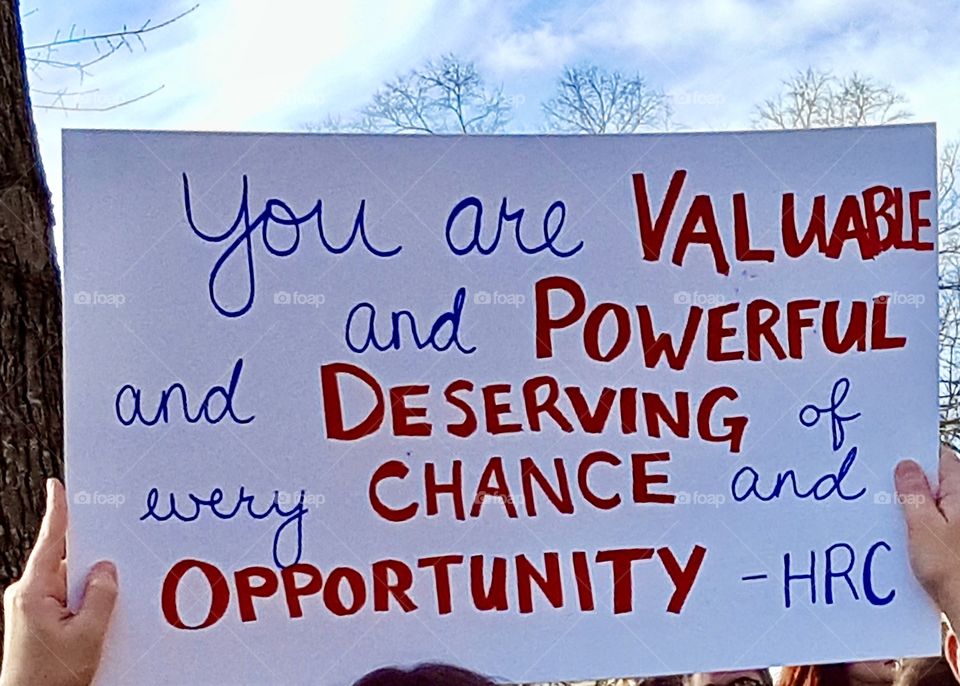 You are VALUABLE
and POWERFUL
and DESERVING of
every CHANCE and
OPPORTUNITY -HRC
foap foap foap foap foap
foap foap foap foap foap
foap foap foap foap foap